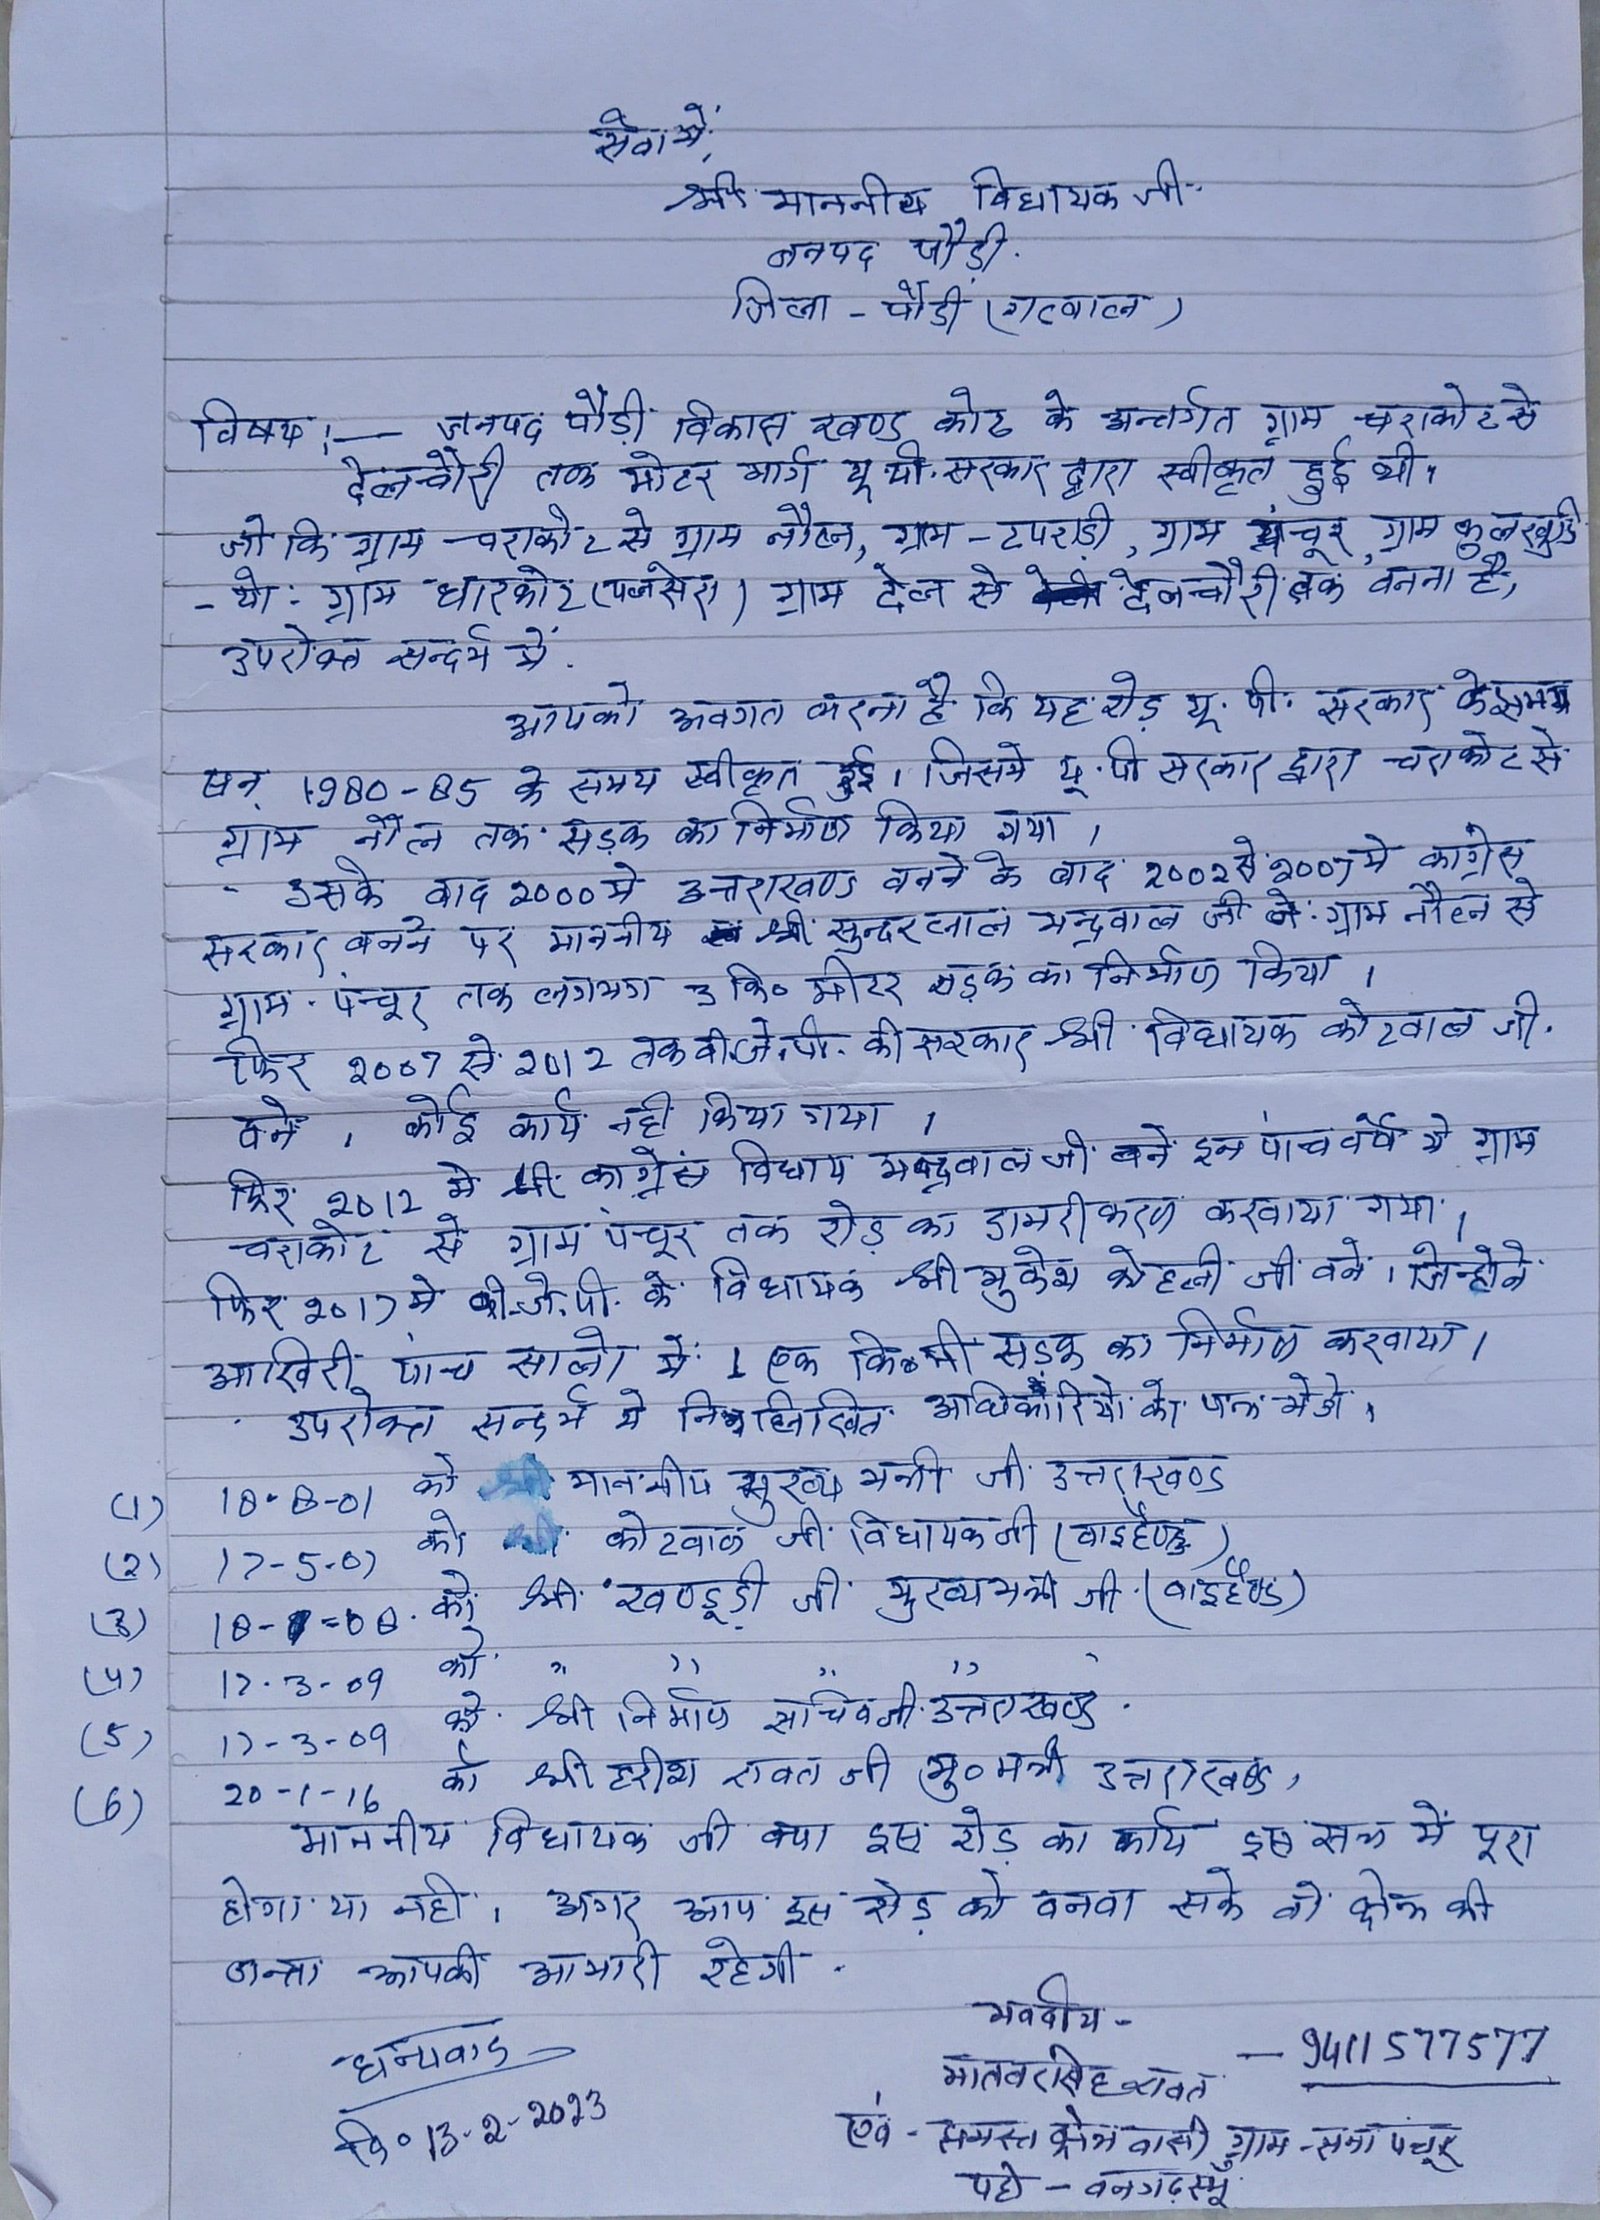 सेवा में,
श्री माननीय विधायक जी
जनपद पौड़ी.
जिला - पौडी (गढवाल)
विषय :— जनपद पौड़ी विकास खण्ड कोट के अन्तर्गत ग्राम चराकोट से
देलचौरी तक मोटर मार्ग यू पी. सरकार द्वारा स्वीकृत हुई थी।
जो कि ग्राम चराकोट से ग्राम नौटन, ग्राम - टपराड़ी, ग्राम पंचूर, ग्राम
ग्राम धारकोट (पलसेरा) ग्राम देल से देलचौरी तक बनना है,
उपरोक्त सन्दर्भ में.
आपको अवगत करना है कि यह रोड़ यू. पी. सरकार के समय
सन् 1980-85 के समय स्वीकृत हुई। जिसमे यू. पी सरकार द्वारा चराकोट से
ग्राम नौटन तक सड़क का निर्माण किया गया।
उसके बाद 2000 मे उत्तराखण्ड बनने के बाद 2002 से 2007 मे कांग्रेस
सरकार बनने पर माननीय श्री सुन्दर लाल मन्द्रवाल जी ने ग्राम नौटन से
ग्राम पन्चूर तक लगभग 3 कि० मीटर सड़क का निर्माण किया।
फिर 2007 से 2012 तक बी.जे.पी. की सरकार श्री विधायक कोटवाल जी.
बने, कोई कार्य नही किया गया।
फिर 2012 मे श्री कांग्रेस विधाय मन्द्रवाल जी बने इन पांच वर्षे मे ग्राम
चराकोट से ग्राम पंचूर तक रोड़ का डामरीकरण करवाया गया।
फिर 2017 मे बी.जे.पी. के विधायक श्री मुकेश कोहली जी बने। जिन्होने
आखिरी पांच सालो में 1 एक कि०मी सड़क का निर्माण करवाया।
उपरोक्त सन्दर्भ मे निम्नलिखित अधिकारियो को पत्र भेजे।
(1) 18-8-01 को श्री माननीय मुख्य मन्त्री जी उत्तराखण्ड
(2) 17-5-07 को श्री कोटवाल जी विधायक जी (बाईहैण्ड)
(3) को श्री खण्डूड़ी जी मुख्यमन्त्री जी (बाईहैण्ड)
(4) 17-3-09 को " " " "
(5) 17-3-09 को श्री निर्माण सचिव जी उत्तराखण्ड.
(6) 20-1-16 को श्री हरीश रावत जी मु० मन्त्री उत्तराखण्ड,
माननीय विधायक जी क्या इस रोड़ का कार्य इस सत्र में पूरा
होगा या नही, अगर आप इस रोड़ को बनवा सके तो क्षेत्र की
जन्ता आपकी आभारी रहेगी.
धन्यवाद
दि० 13-2-2023
भवदीय -
मातवर सिंह रावत — 9411577577
एवं - समस्त क्षेत्र वासी ग्राम - सभा पंचूर
पटी - बनगढ़स्यूँ